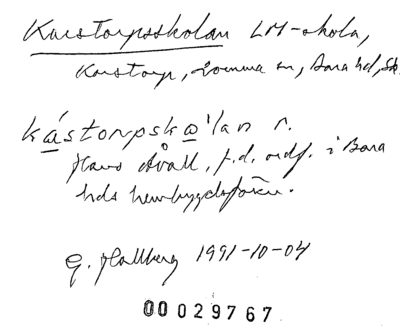 Karstorpsskolan LM-skola,
Karstorp, Lomma sn, Bara hd, Sk.
kástorpska'lan r.
Hans Åvall, f.d. ordf. i Bara
hds hembygdsfören.
G. Hallberg 1991-10-04
00 029767